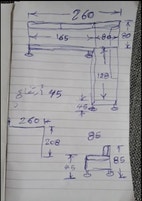 260
165
80
80
128
45
45
260
208
85
45
85